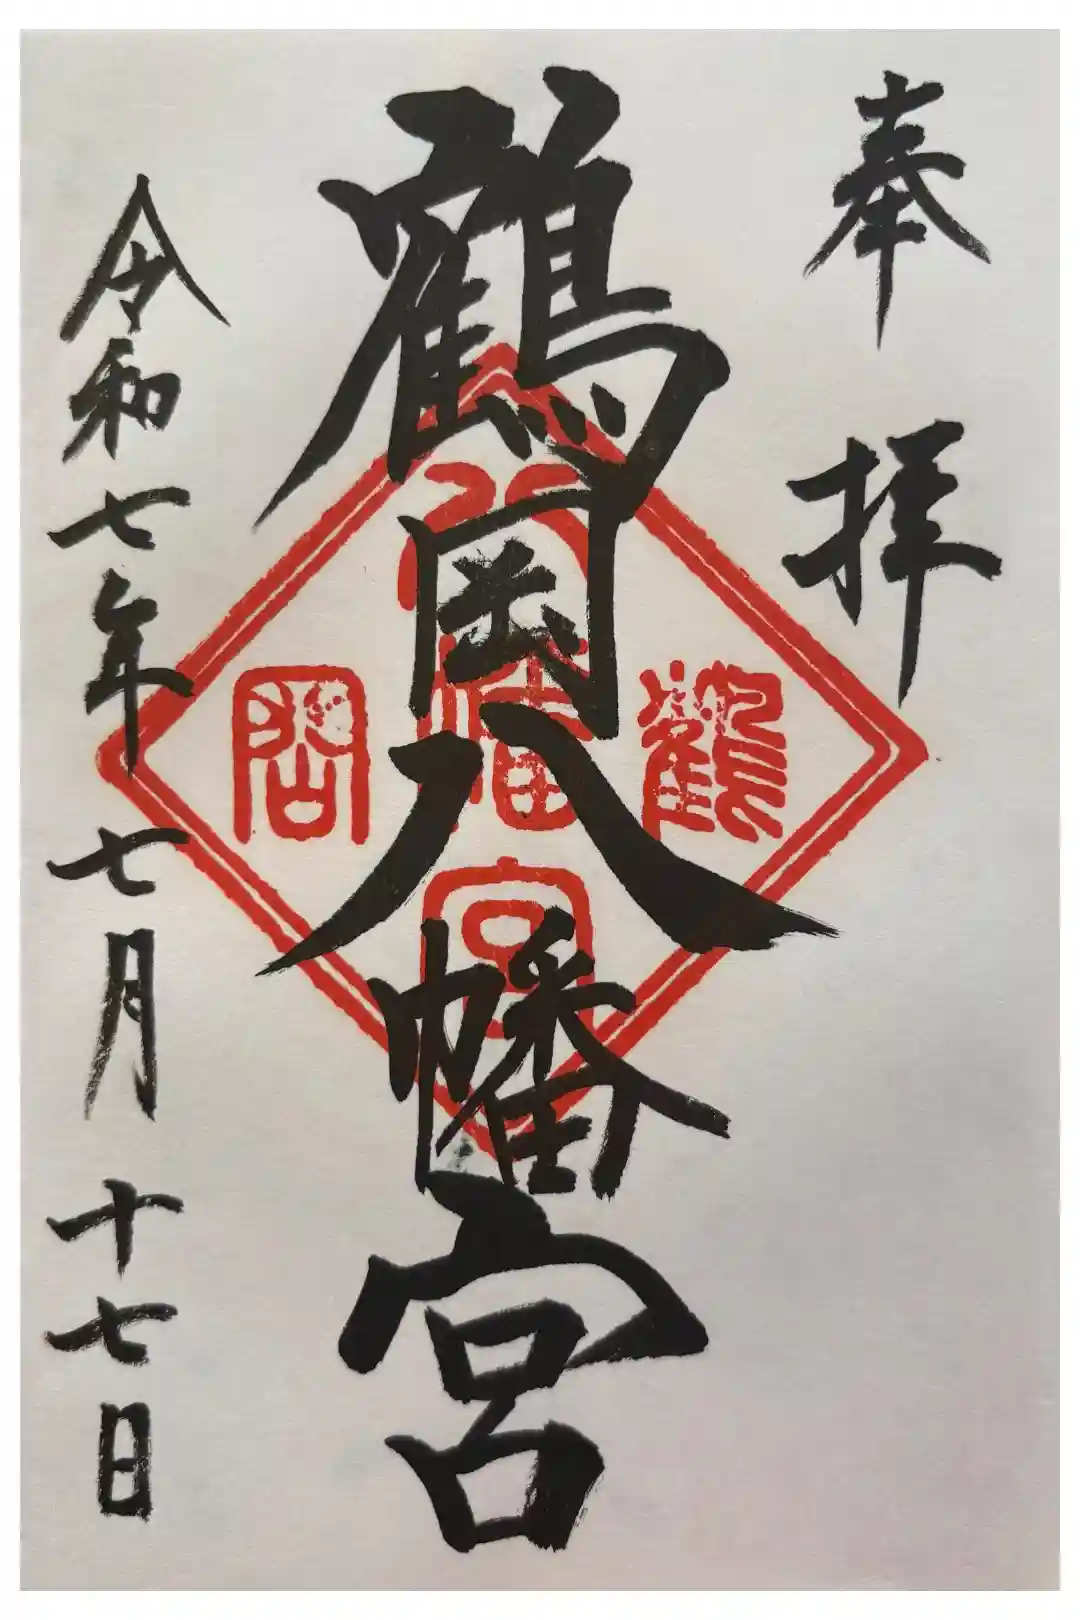 奉拝
鶴岡八幡宮
令和七年七月十七日
鶴
八幡宮
岡